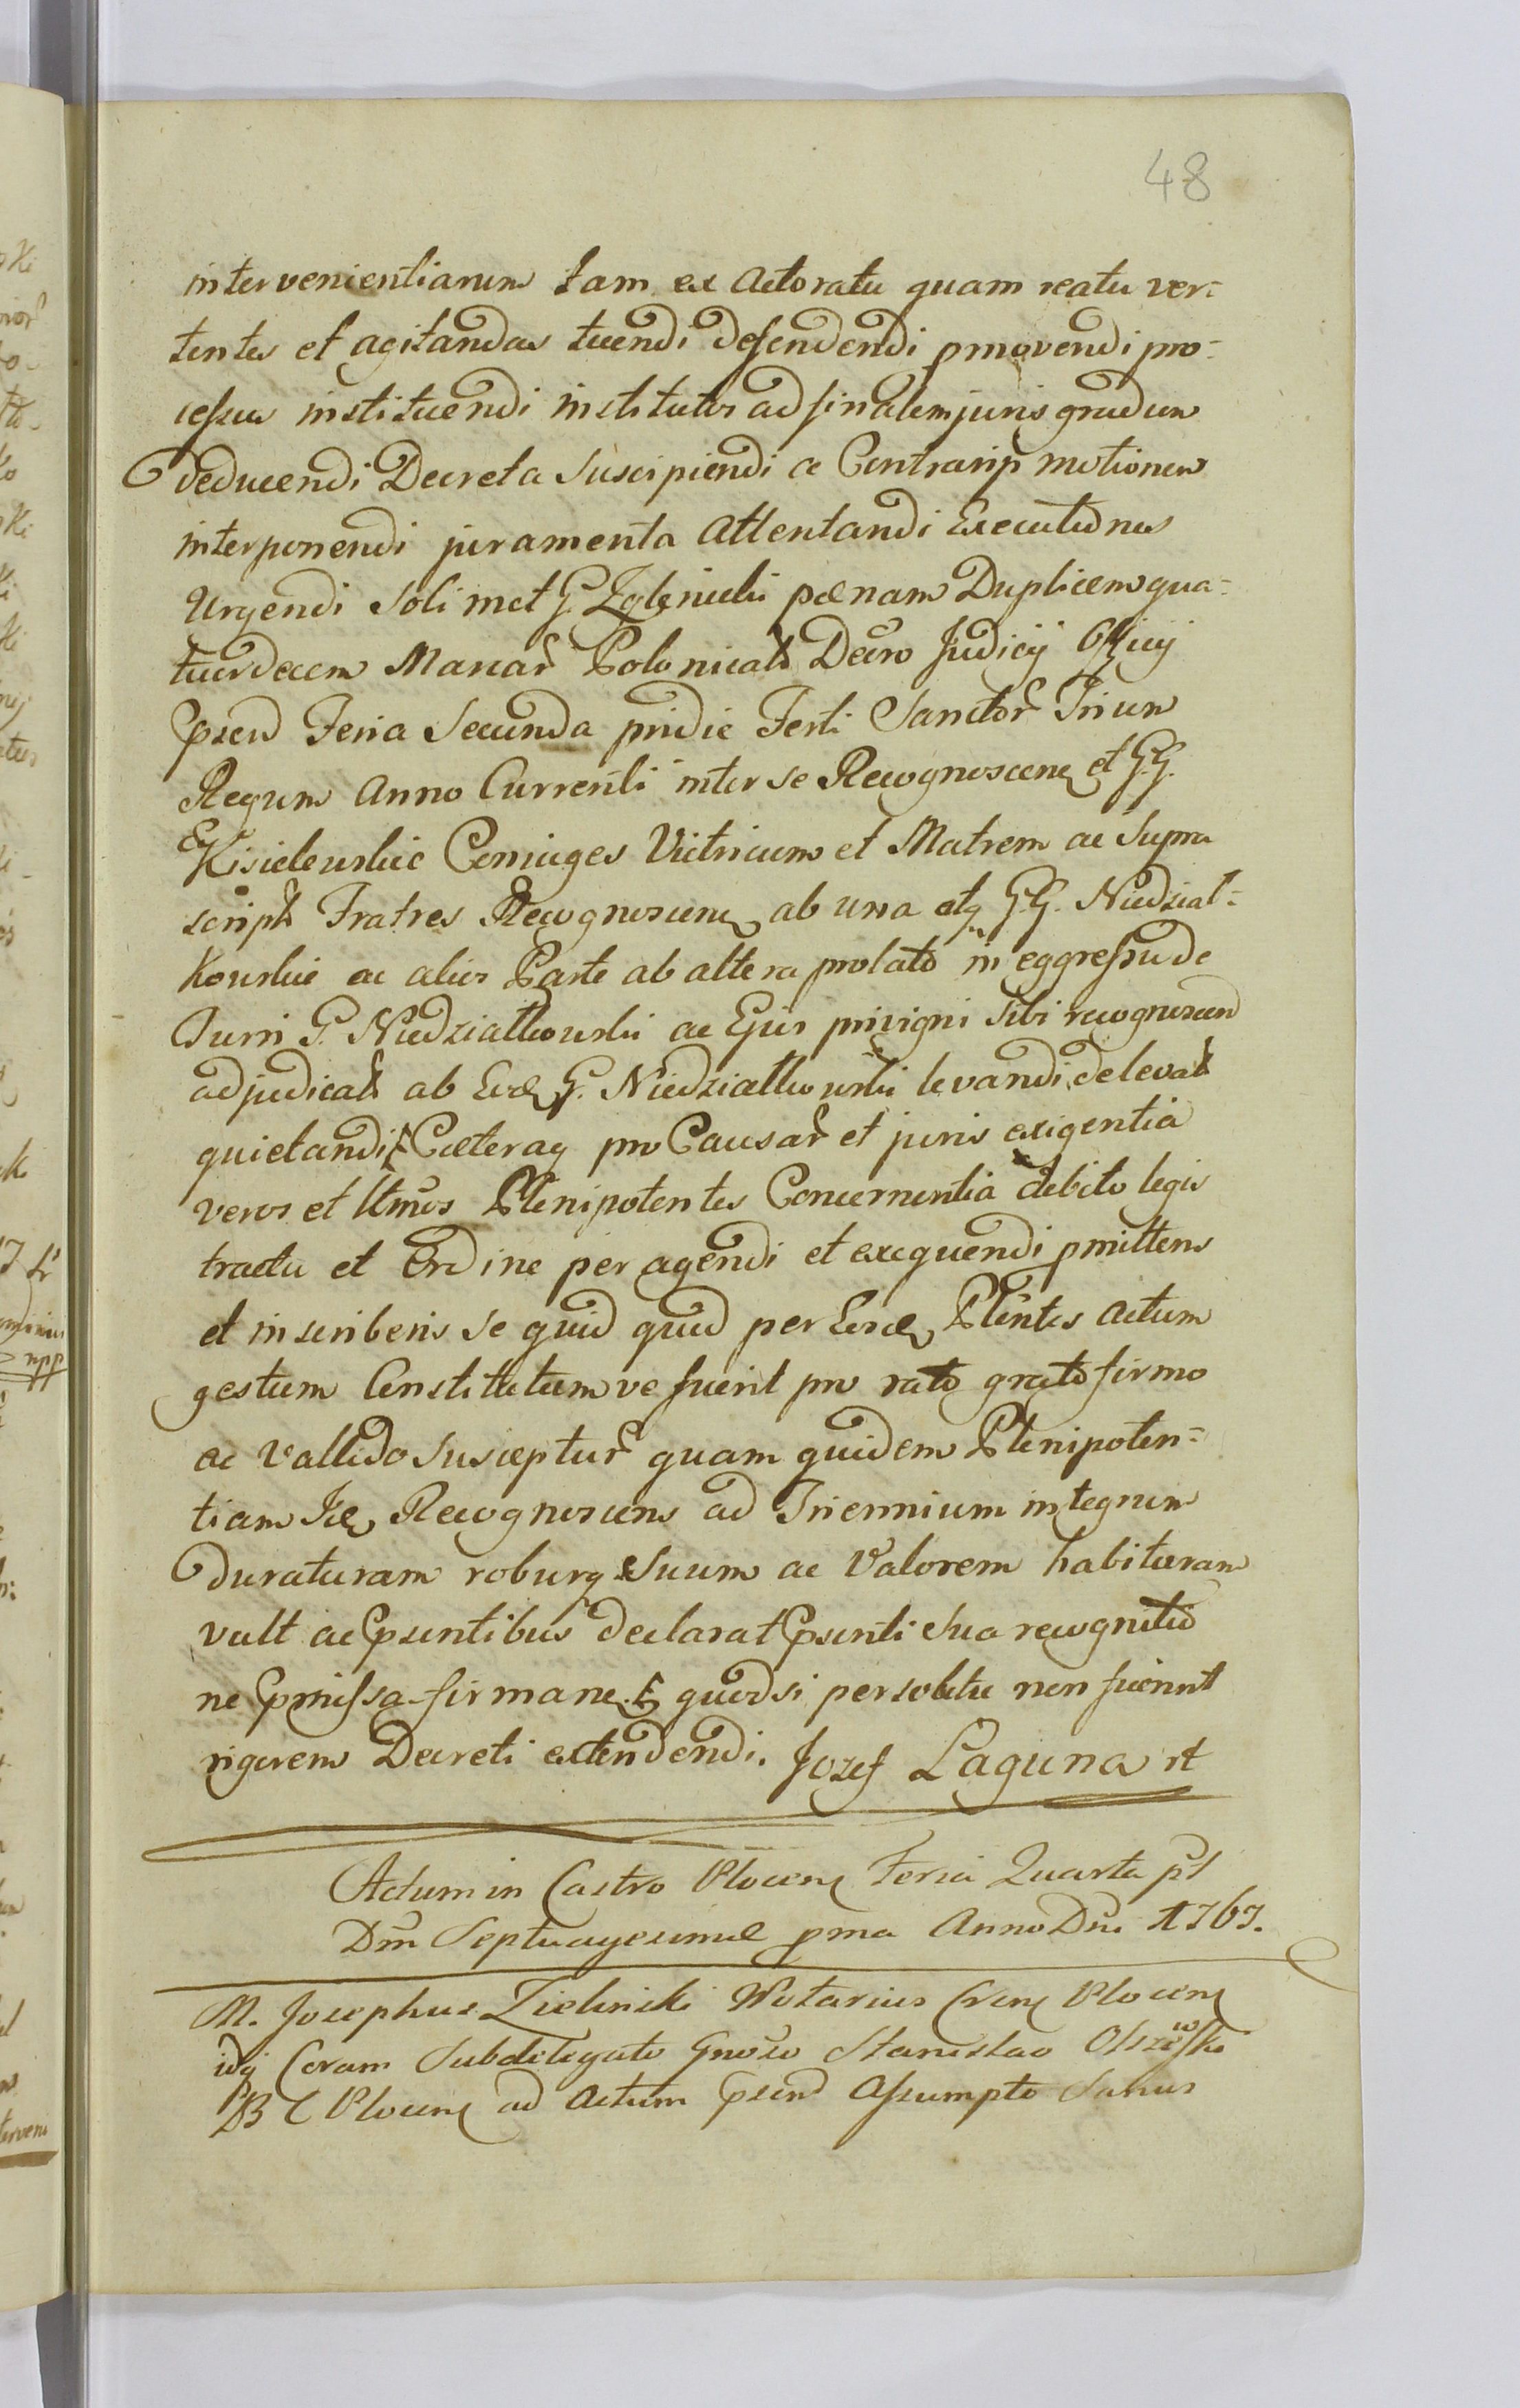 48
intervenientiarum tam ex Actoratu quam reatu ver=
tentes et agitandas tuendi defendendi pmovendi pro=
cessus instituendi institutos ad finalem juris gradum
deducendi Decreta Suscipiendi a Contrariis motionem
interponendi juramenta Attentandi Executiones
Urgendi soli met G. Zglenicki pænam Duplicem qua=
tuordecem Marcar Polonical Decro Judicij Officij
psen Feria Secunda pridie Festi Sanctor Trium
Regum Anno Currenti inter se Recognoscen et G.G.
Kisielewskie Coniuges Victricum et Matrem ac Supra
script Fratres Recognoscen ab una atq G.G. Niedzial=
kowskie ac alios Parte ab altera prolato in eggressu de
Turri G. Niedzialkowski ac Ejus privigni sibi recognoscen
adjudicat ab Eod G. Niedzialkowski levandi, de levat
quietandi Cæteraq pro Causar et juris exigentia
veros et ltmos Plenipotentes Concernentia debito legis
tractu et Ordine per agendi et exequendi pmittens
et inscribens se quid quid per Eosd Plentes actum
gestum Constitutum ve fuerit pro rato grato firmo
ac vallido susceptur quam quidem Plenipoten=
tiam Id Recognoscens ad Triennium integrum
duraturam roburq Suum ac Valorem habituram
vult ac psentibus declarat psenti sua recognitio
ne pmissa firmane quod si persolute non fuerint
rigorem Decreti extendendi. Jozef Laguna rt
Actum in Castro Plocen Feria Quarta pt
Dm Septuagesimæ pma Anno Dni 1767.
M. Josephus Zielinski Notarius Cren Plocen
idq Coram Subdelegato Gnoso Stanislao Olszewski
B C Plocen ad Actum psen Assumpto Sanus